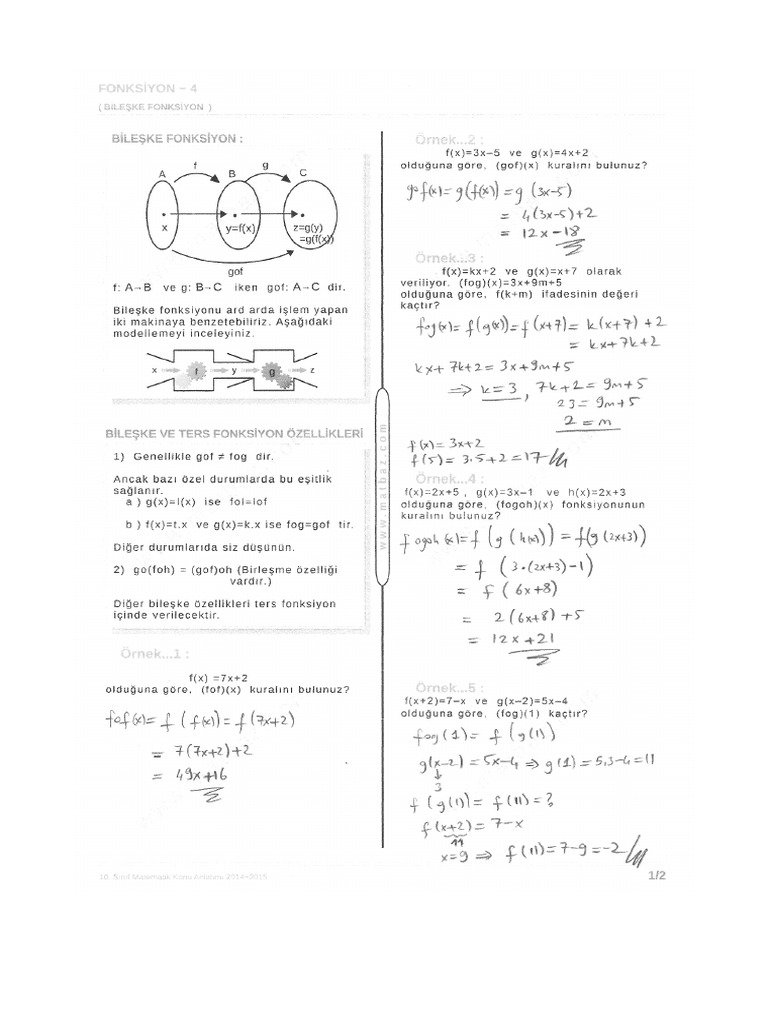 FONKSİYON – 4
( BİLEŞKE FONKSİYON )
BİLEŞKE FONKSİYON :
f g
A B C
x y=f(x) z=g(y)
=g(f(x))
gof
f: A→B ve g: B→C iken gof: A→C dir.
Bileşke fonksiyonu ard arda işlem yapan
iki makinaya benzetebiliriz. Aşağıdaki
modellemeyi inceleyiniz.
x f y g z
BİLEŞKE VE TERS FONKSİYON ÖZELLİKLERİ
1) Genellikle gof ≠ fog dir.
Ancak bazı özel durumlarda bu eşitlik
sağlanır.
a ) g(x)=I(x) ise foI=Iof
b ) f(x)=t.x ve g(x)=k.x ise fog=gof tir.
Diğer durumlarıda siz düşünün.
2) go(foh) = (gof)oh (Birleşme özelliği
vardır.)
Diğer bileşke özellikleri ters fonksiyon
içinde verilecektir.
Örnek...1 :
f(x) =7x+2
olduğuna göre, (fof)(x) kuralını bulunuz?
fof(x)= f (f(x))= f (7x+2)
= 7(7x+2)+2
= 49x+16
www.matbaz.com
Örnek...2 :
f(x)=3x–5 ve g(x)=4x+2
olduğuna göre, (gof)(x) kuralını bulunuz?
gof(x)= g(f(x))= g (3x-5)
= 4(3x-5)+2
= 12x-18
Örnek...3 :
f(x)=kx+2 ve g(x)=x+7 olarak
veriliyor. (fog)(x)=3x+9m+5
olduğuna göre, f(k+m) ifadesinin değeri
kaçtır?
fog(x)= f(g(x))= f(x+7)= k(x+7)+2
= kx+7k+2
kx+7k+2=3x+9m+5
⇒ k=3, 7k+2=9m+5
23=9m+5
2=m
f(x)=3x+2
f(5)=3.5+2=17
Örnek...4 :
f(x)=2x+5 , g(x)=3x–1 ve h(x)=2x+3
olduğuna göre, (fogoh)(x) fonksiyonunun
kuralını bulunuz?
fogoh(x)= f(g(h(x)))= f(g(2x+3))
= f (3.(2x+3)-1)
= f (6x+8)
= 2(6x+8)+5
= 12x+21
Örnek...5 :
f(x+2)=7–x ve g(x–2)=5x–4
olduğuna göre, (fog)(1) kaçtır?
fog(1)= f(g(1))
g(x-2)=5x-4 ⇒ g(1)=5.3-4=11
3
f(g(1))= f(11)=?
f(x+2)=7-x
11
x=9 ⇒ f(11)=7-9=-2
10. Sınıf Matematik Konu Anlatımı 2014–2015
1/2